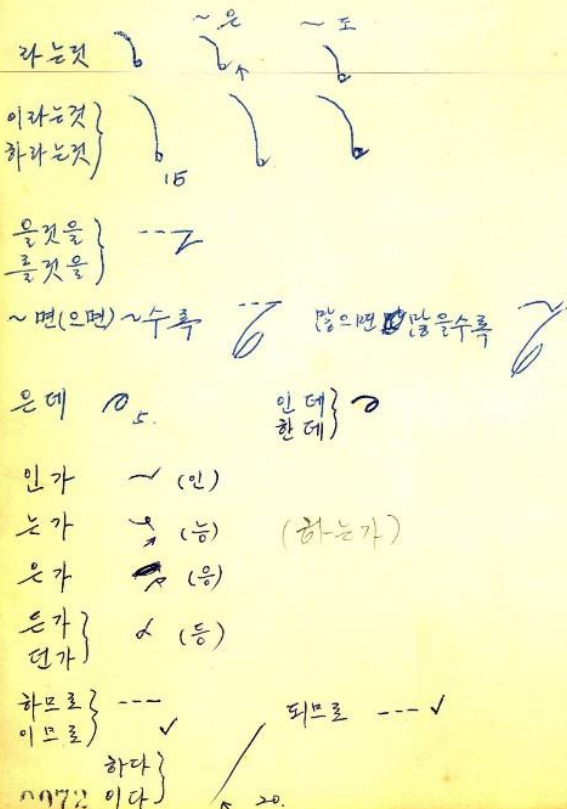 ~은 ~도
라는것
이라는것
하라는것
15
을것을
를것을
~면(으면)~수록 많으면 많을수록
은데 5. 인데
한데
인가 (인)
는가 (능) (하는가)
은가 (응)
든가 (등)
던가
하므로 되므로
이므로
하다
이다 20.
0072